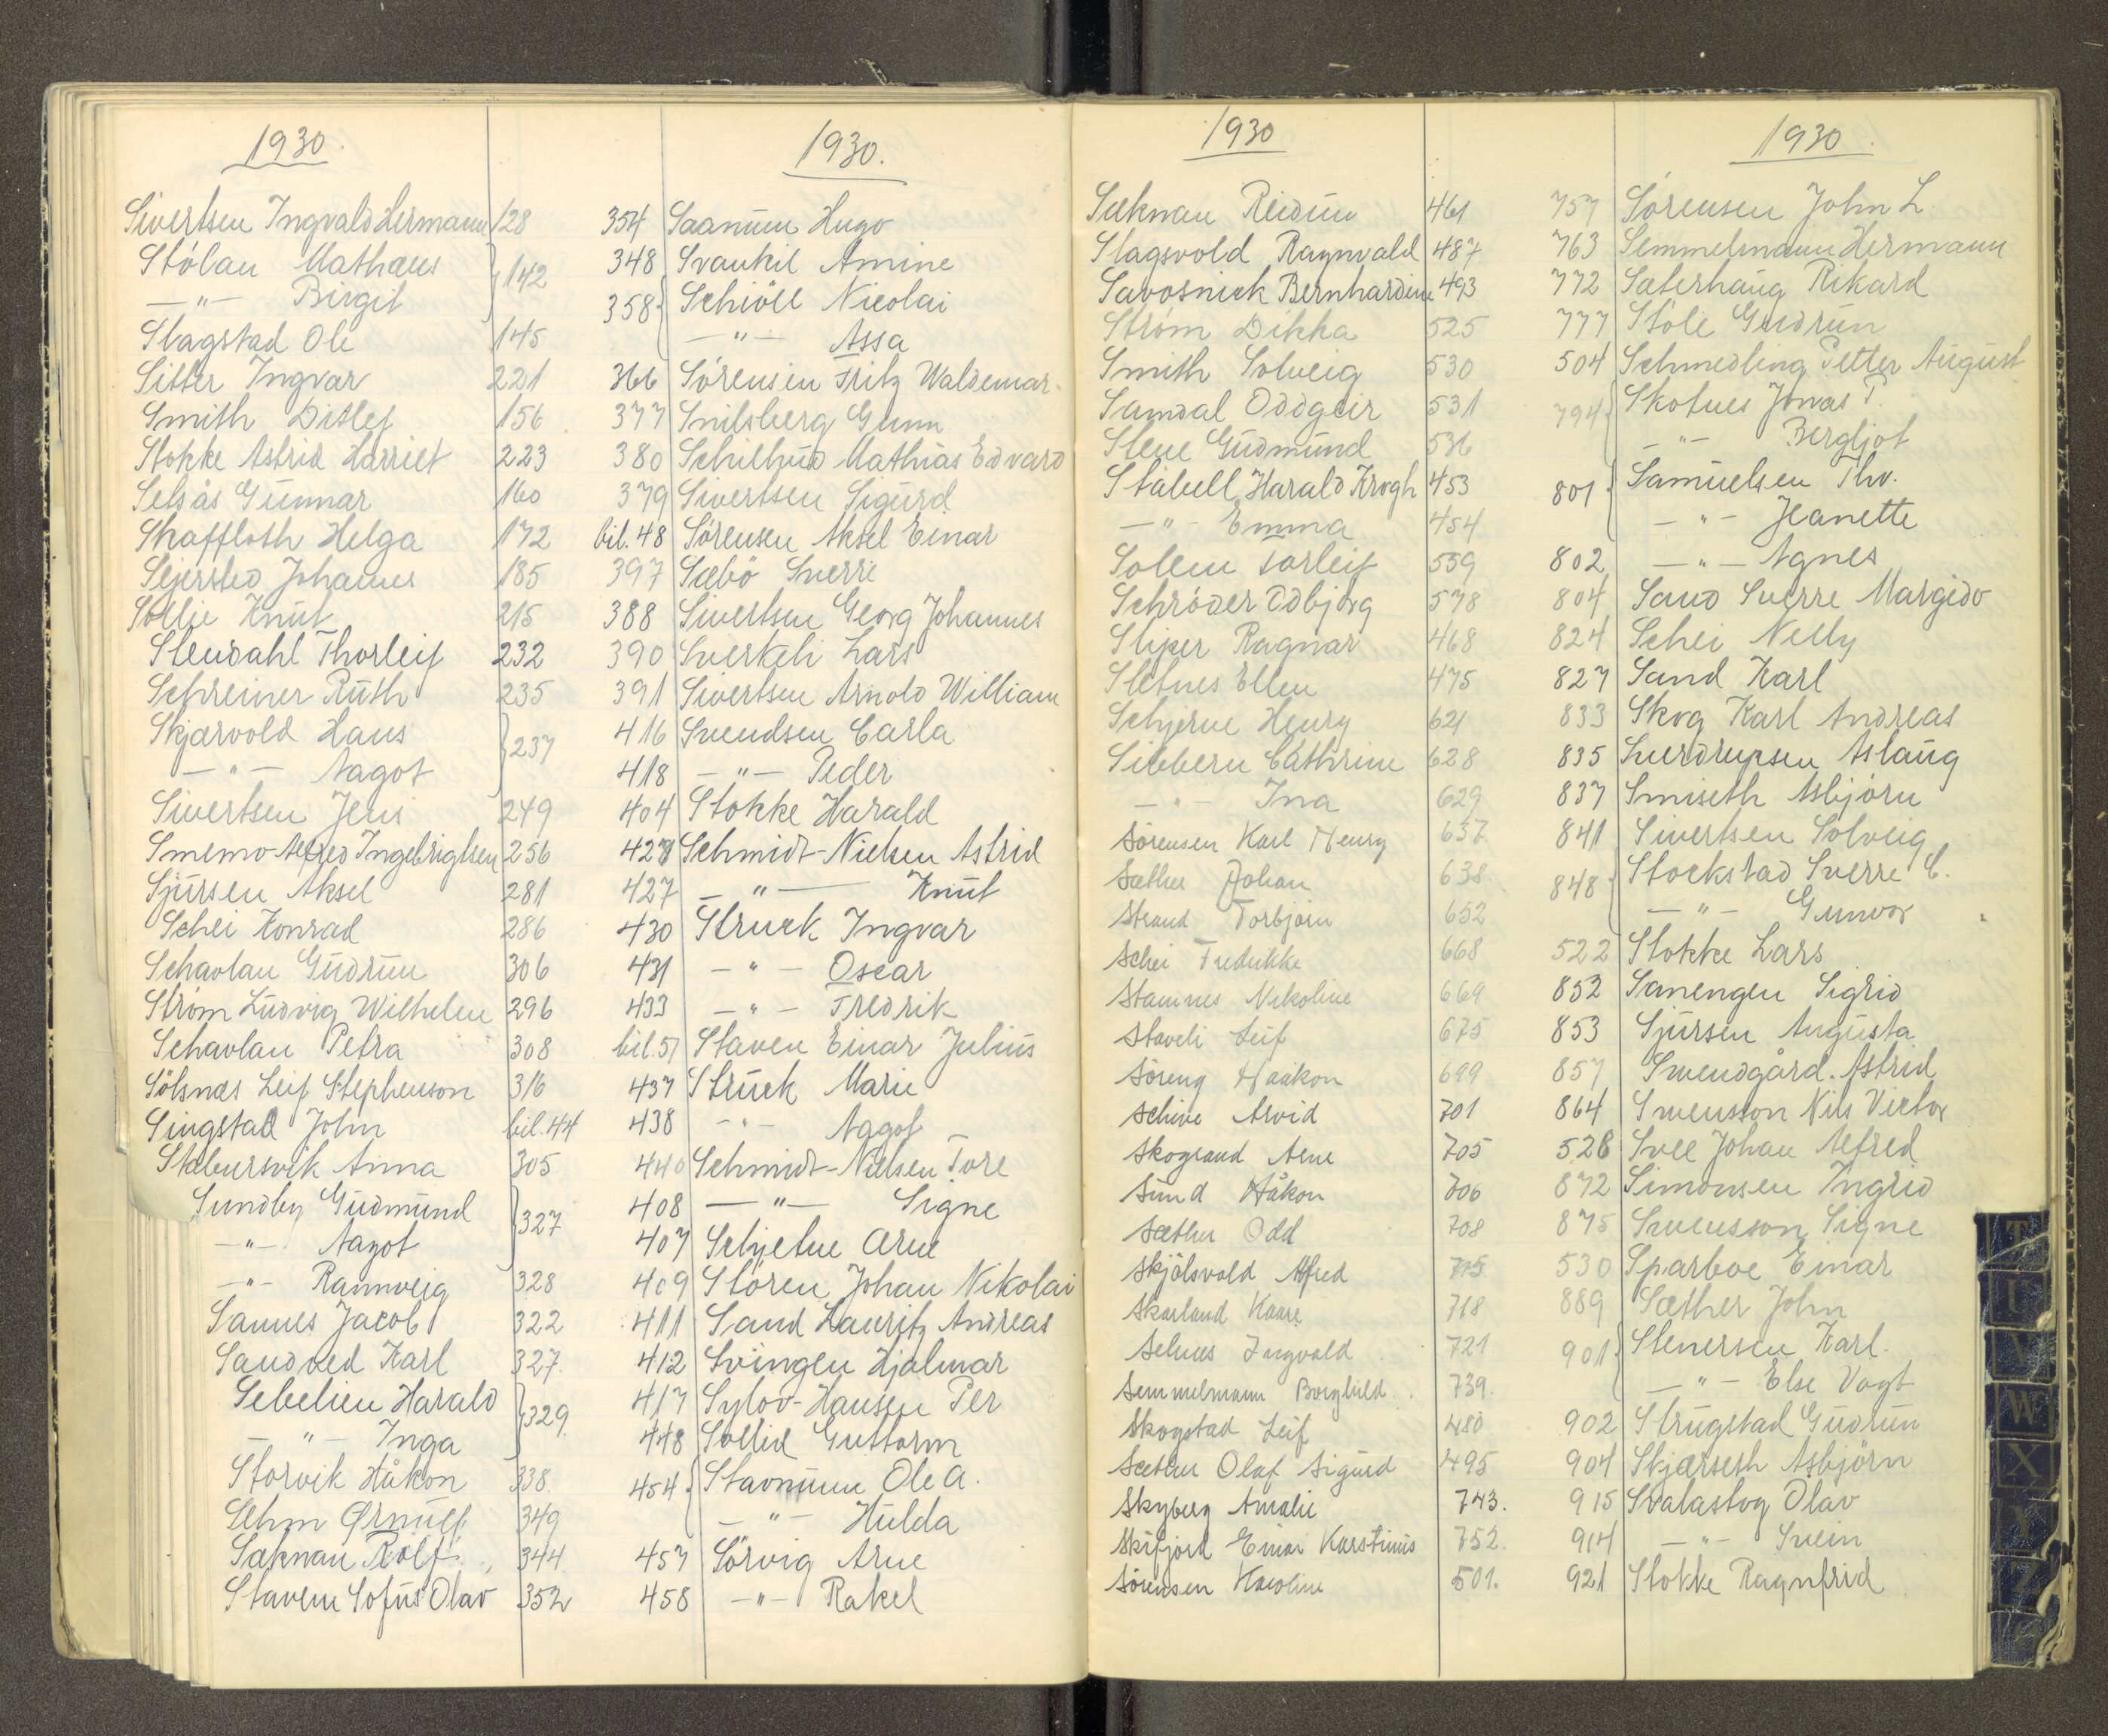 1930.
Sivertsen Ingvald Hermann 128
Stölan Mathæus } 142
—"— Birgit
Slagstad Ole 145
Sitter Ingvar 221
Smith Ditlef 156
Stokke Astrid Harriet 223
Setsås Gunnar 160
Skaffloth Helga 172
Sejersted Johannes 185
Sollie Knut 215
Stendahl Thorleif 232
Schreiner Ruth 235
Skjærvold Hans } 237
—"— Aagot
Sivertsen Jens 249
Smemo Alfred Ingebrigtsen 256
Sjursen Aksel 281
Schei Konrad 286
Schavlan Gudrun 306
Strøm Ludvig Wilhelm 296
Schavlan Petra 308
Sölsnæs Leif Stephenson 316
Singstad John bil. 44
Stabursvik Anna 305
Sundby Gudmund } 327
—"— Aagot
—"— Rannveig 328
Sannes Jacob 322
Sandved Karl 327.
Sebelien Harald } 329.
—"— Inga
Storvik Håkon 338.
Sehm Ørnulf 349
Sæknan Rolf 344.
Stavem Sofus Olav 352
1930.
354 Saanum Hugo
348 Svankil Amine
358 { Schiöll Nicolai
—"— Assa
366 Sörensen Fritz Waldemar
377 Snilsberg Gunn
380 Schilhud Mathias Edvard
379 Sivertsen Sigurd
bil. 48 Sörensen Aksel Einar
397 Sæbö Sverre
388 Sivertsen Georg Johannes
390 Sverkeli Lars
391 Sivertsen Arnold William
416 Svendsen Carla
418 —"— Peder
404 Stokke Harald
428 Schmidt-Nielsen Astrid
427 —"— Knut
430 Struck Ingvar
431 —"— Oscar
433 —"— Fredrik
bil. 51 Staven Einar Julius
437 Struck Marie
438 —"— Aagot
440 Schmidt-Nielsen Tore
408 —"— Signe
407 Schjetne Arne
409 Stören Johan Nikolai
411 Sand Lauritz Andreas
412 Svingen Hjalmar
417 Sylov-Hansen Per
448 Sollid Guttorm
454 { Stavnum Ole A.
—"— Hulda
457 Sörvig Arne
458 —"— Rakel
1930
Sæknan Reidun 461
Slagsvold Ragnvald 487
Savosnick Bernhardine 493
Strøm Dikka 525
Smith Solveig 530
Samdal Oddgeir 531
Stene Gudmund 536
Stabell Harald Krogh 453
—"— Emma 454
Solem Torleif 559
Schröder Odbjørg 578
Sliper Ragnar 468
Sletnes Ellen 475
Schjerve Henry 621
Sibbern Cathrine 628
—"— Ina 629
Sörensen Karl Henry 637
Sæther Johan 638.
Strand Torbjörn 652
Schei Fredrikke 668
Stamnes Nikoline 669
Staveli Leif 675
Söreng Haakon 699
Schive Arvid 701
Skogrand Arne 705
Sund Håkon 706
Sæther Odd 708
Skjölsvold Alfred 715
Skarland Kaare 718
Selnes Ingvald 721
Semmelmann Borghild. 739.
Skogstad Leif 480
Sæther Olaf Sigurd 495
Skyberg Amalie 743.
Skifjord Einar Karstinus 752.
Sörensen Karoline 501.
1930.
757 Sörensen John L.
763 Semmelmann Hermann
772 Sæterhaug Rikard
777 Støle Gudrun
504 Schmedling Petter August
794 { Skotnes Jonas P.
—"— Bergljot
801 { Samuelsen Thv.
—"— Jeanette
802 —"— Agnes
804 Sand Sverre Margido
824 Schei Nelly
827 Sand Karl
833 Skog Karl Andreas
835 Sverdrupsen Aslaug
837 Smiseth Asbjörn
841 Sivertsen Solveig
848 { Stockstad Sverre C.
—"— Gunvor
522 Stokke Lars
852 Sanengen Sigrid
853 Sjursen Augusta
857 Svendgård. Astrid
864 Svensson Nils Victor
528 Svee Johan Alfred
872 Simonsen Ingrid
875 Svensson Signe
530 Sparboe Einar
889 Sæther John
901 { Stenersen Karl.
—"— Else Vogt
902 Strugstad Gudrun
904 Skjærseth Asbjörn
915 Svalastog Olav
914 —"— Svein
921 Stokke Ragnfrid
T
U
V
W
X
Y
Z